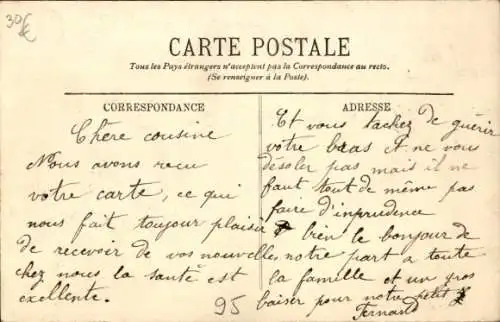 30€
CARTE POSTALE
Tous les Pays étrangers n'acceptent pas la Correspondance au recto.
(Se renseigner à la Poste).
CORRESPONDANCE
Chère cousine
Nous avons recu
votre carte, ce qui
nous fait toujour plaisir
de recevoir de vos nouvelles
chez nous la santé est
exellente.
95
ADRESSE
Et vous tachez de guérir
votre bras et ne vous
désoler pas mais il ne
faut tout de même pas
faire d'inprudence
bien le bonjour de
notre part a toute
la famille et un gros
baiser pour notre petit
Fernand